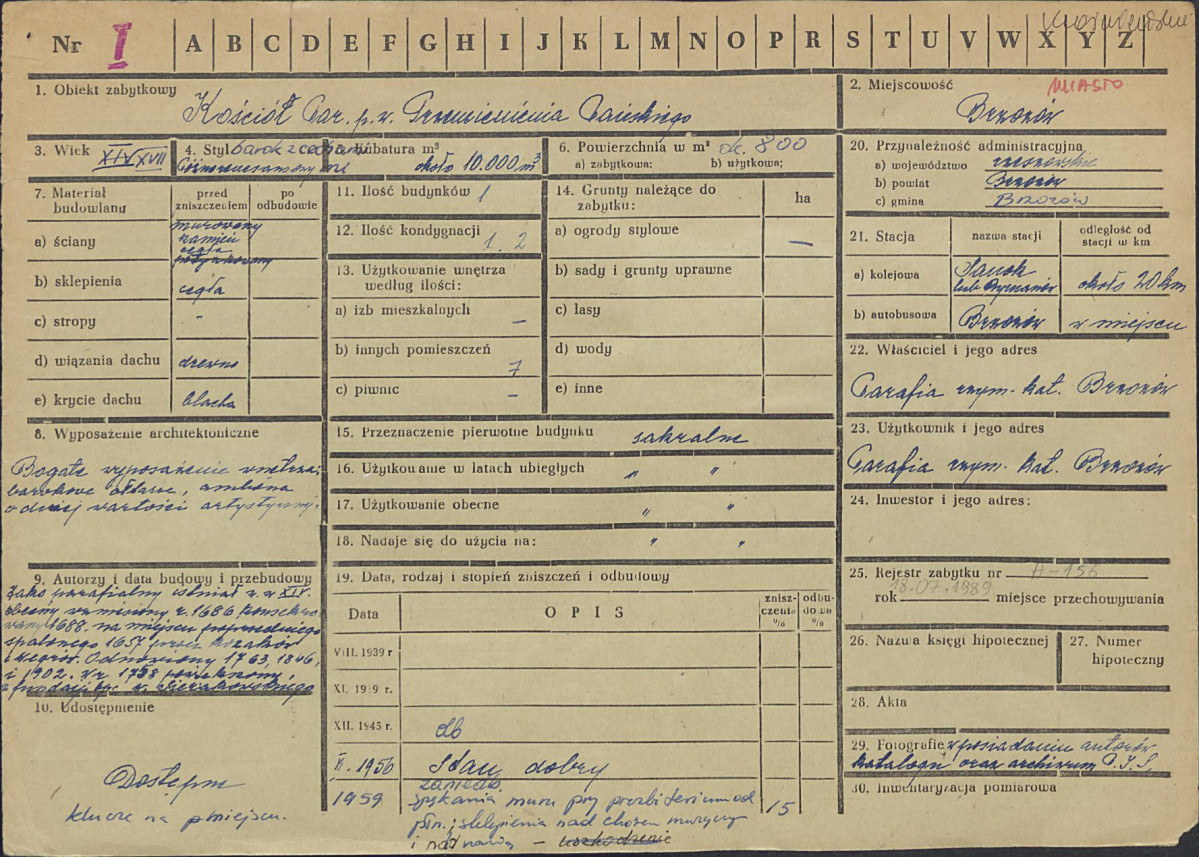 Nr I A B C D E F G H I J K L M N O P R S T U V W X Y Z
1. Obiekt zabytkowy
Kościół Par. p.w. Przemienienia Pańskiego
2. Miejscowość
MIASTO
Brzozów
3. Wiek XIV XVII
4. Styl barok z cechami
późnorenesansowymi
5. Kubatura m³
około 10.000 m³
6. Powierzchnia w m² ok. 800
a) zabytkowa: b) użytkowa:
7. Materiał budowlany
przed zniszczeniem
po odbudowie
a) ściany
murowany
kamień
cegła
potynkowany
b) sklepienia
cegła
c) stropy
"
d) wiązania dachu
drewno
e) krycie dachu
blacha
8. Wyposażenie architektoniczne
Bogate wyposażenie wnętrza;
barokowe ołtarze, ambona
o dużej wartości artystycznej.
9. Autorzy i data budowy i przebudowy
Jako parafialny istniał w w XIV.
obecny wzniesiony r. 1686 konsekro-
wany 1688. na miejscu poprzedniego
spalonego 1657 przez kozaków
i węgrów. Odnowiony 1763, 1846,
i 1902. w r. 1738 powiększony,
z fundacji bp. w. Sierakowskiego
10. Udostępnienie
Dostępny
klucze na miejscu.
11. Ilość budynków 1
12. Ilość kondygnacji
1. 2
13. Użytkowanie wnętrza
według ilości:
a) izb mieszkalnych
—
b) innych pomieszczeń
7
c) piwnic
—
14. Grunty należące do
zabytku:
ha
a) ogrody stylowe
—
b) sady i grunty uprawne
c) lasy
d) wody
e) inne
15. Przeznaczenie pierwotne budynku sakralne
16. Użytkowanie w latach ubiegłych " "
17. Użytkowanie obecne " "
18. Nadaje się do użycia na: " "
19. Data, rodzaj i stopień zniszczeń i odbudowy
Data
OPIS
znisz-
czenia
%
odbu-
dowa
%
VIII. 1939 r
XI. 1939 r.
XII. 1945 r. db
II. 1956 Stan dobry
zaniedb.
1959 spękania muru przy prezbiterium od 15
płn. i sklepienia nad chórem muzycz
i nad nawą – uszkodzenie
20. Przynależność administracyjna
a) województwo rzeszowskie
b) powiat Brzozów
c) gmina Brzozów
21. Stacja
nazwa stacji
odległość od
stacji w km
a) kolejowa
Sanok
lub Rymanów
około 20 km
b) autobusowa
Brzozów
w miejscu
22. Właściciel i jego adres
Parafia rzym. kat. Brzozów
23. Użytkownik i jego adres
Parafia rzym. kat. Brzozów
24. Inwestor i jego adres:
25. Rejestr zabytku nr A-156
rok 18.07.1989 miejsce przechowywania
26. Nazwa księgi hipotecznej
27. Numer
hipoteczny
28. Akta
29. Fotografie w posiadaniu autorów
katalogu oraz archiwum P.I.S.
30. Inwentaryzacja pomiarowa